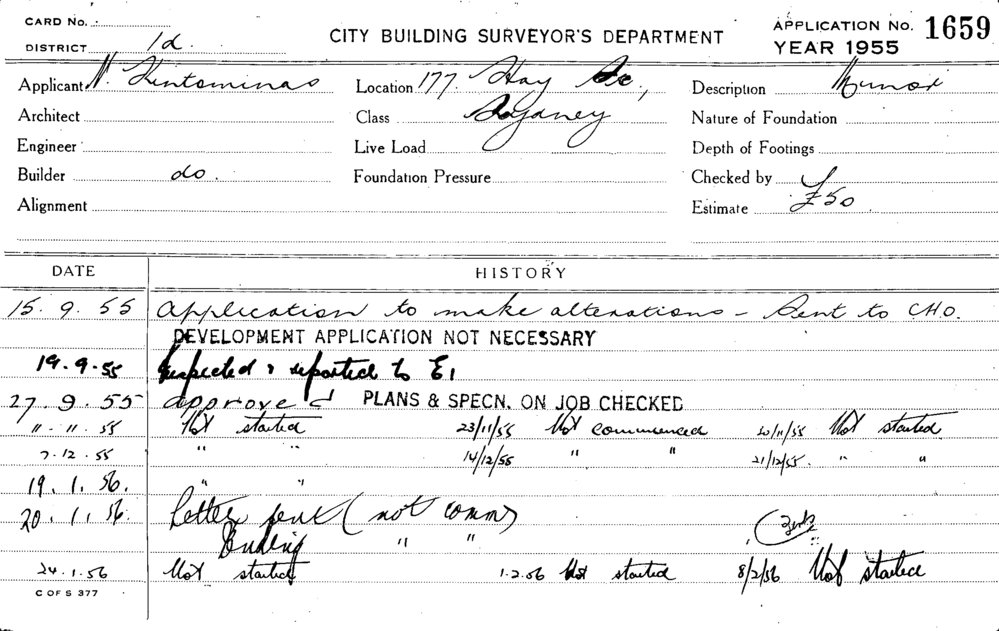 CARD No.
DISTRICT 1d.
CITY BUILDING SURVEYOR'S DEPARTMENT
APPLICATION No. 1659
YEAR 1955
Applicant N. Kintominas
Location 177. Hay St,
Description Minor
Architect
Class Sydney
Nature of Foundation
Engineer
Live Load
Depth of Footings
Builder do.
Foundation Pressure
Checked by
Alignment
Estimate £50
DATE HISTORY
15. 9. 55 Application to make alterations - Sent to CHO.
DEVELOPMENT APPLICATION NOT NECESSARY
19. 9. 55 Inspected & reported to E1
27. 9. 55 approved PLANS & SPECN. ON JOB CHECKED
11. 11. 55 Not started 23/11/55 Not commenced 30/11/55 Not started
7. 12. 55 " " 14/12/55 " " 21/12/55. " "
19. 1. 56. " "
20. 1. 56. Letter sent (not comm)
" "
24. 1. 56 Not started 1. 2. 56 Not started 8/2/56 Not started
C OF S 377